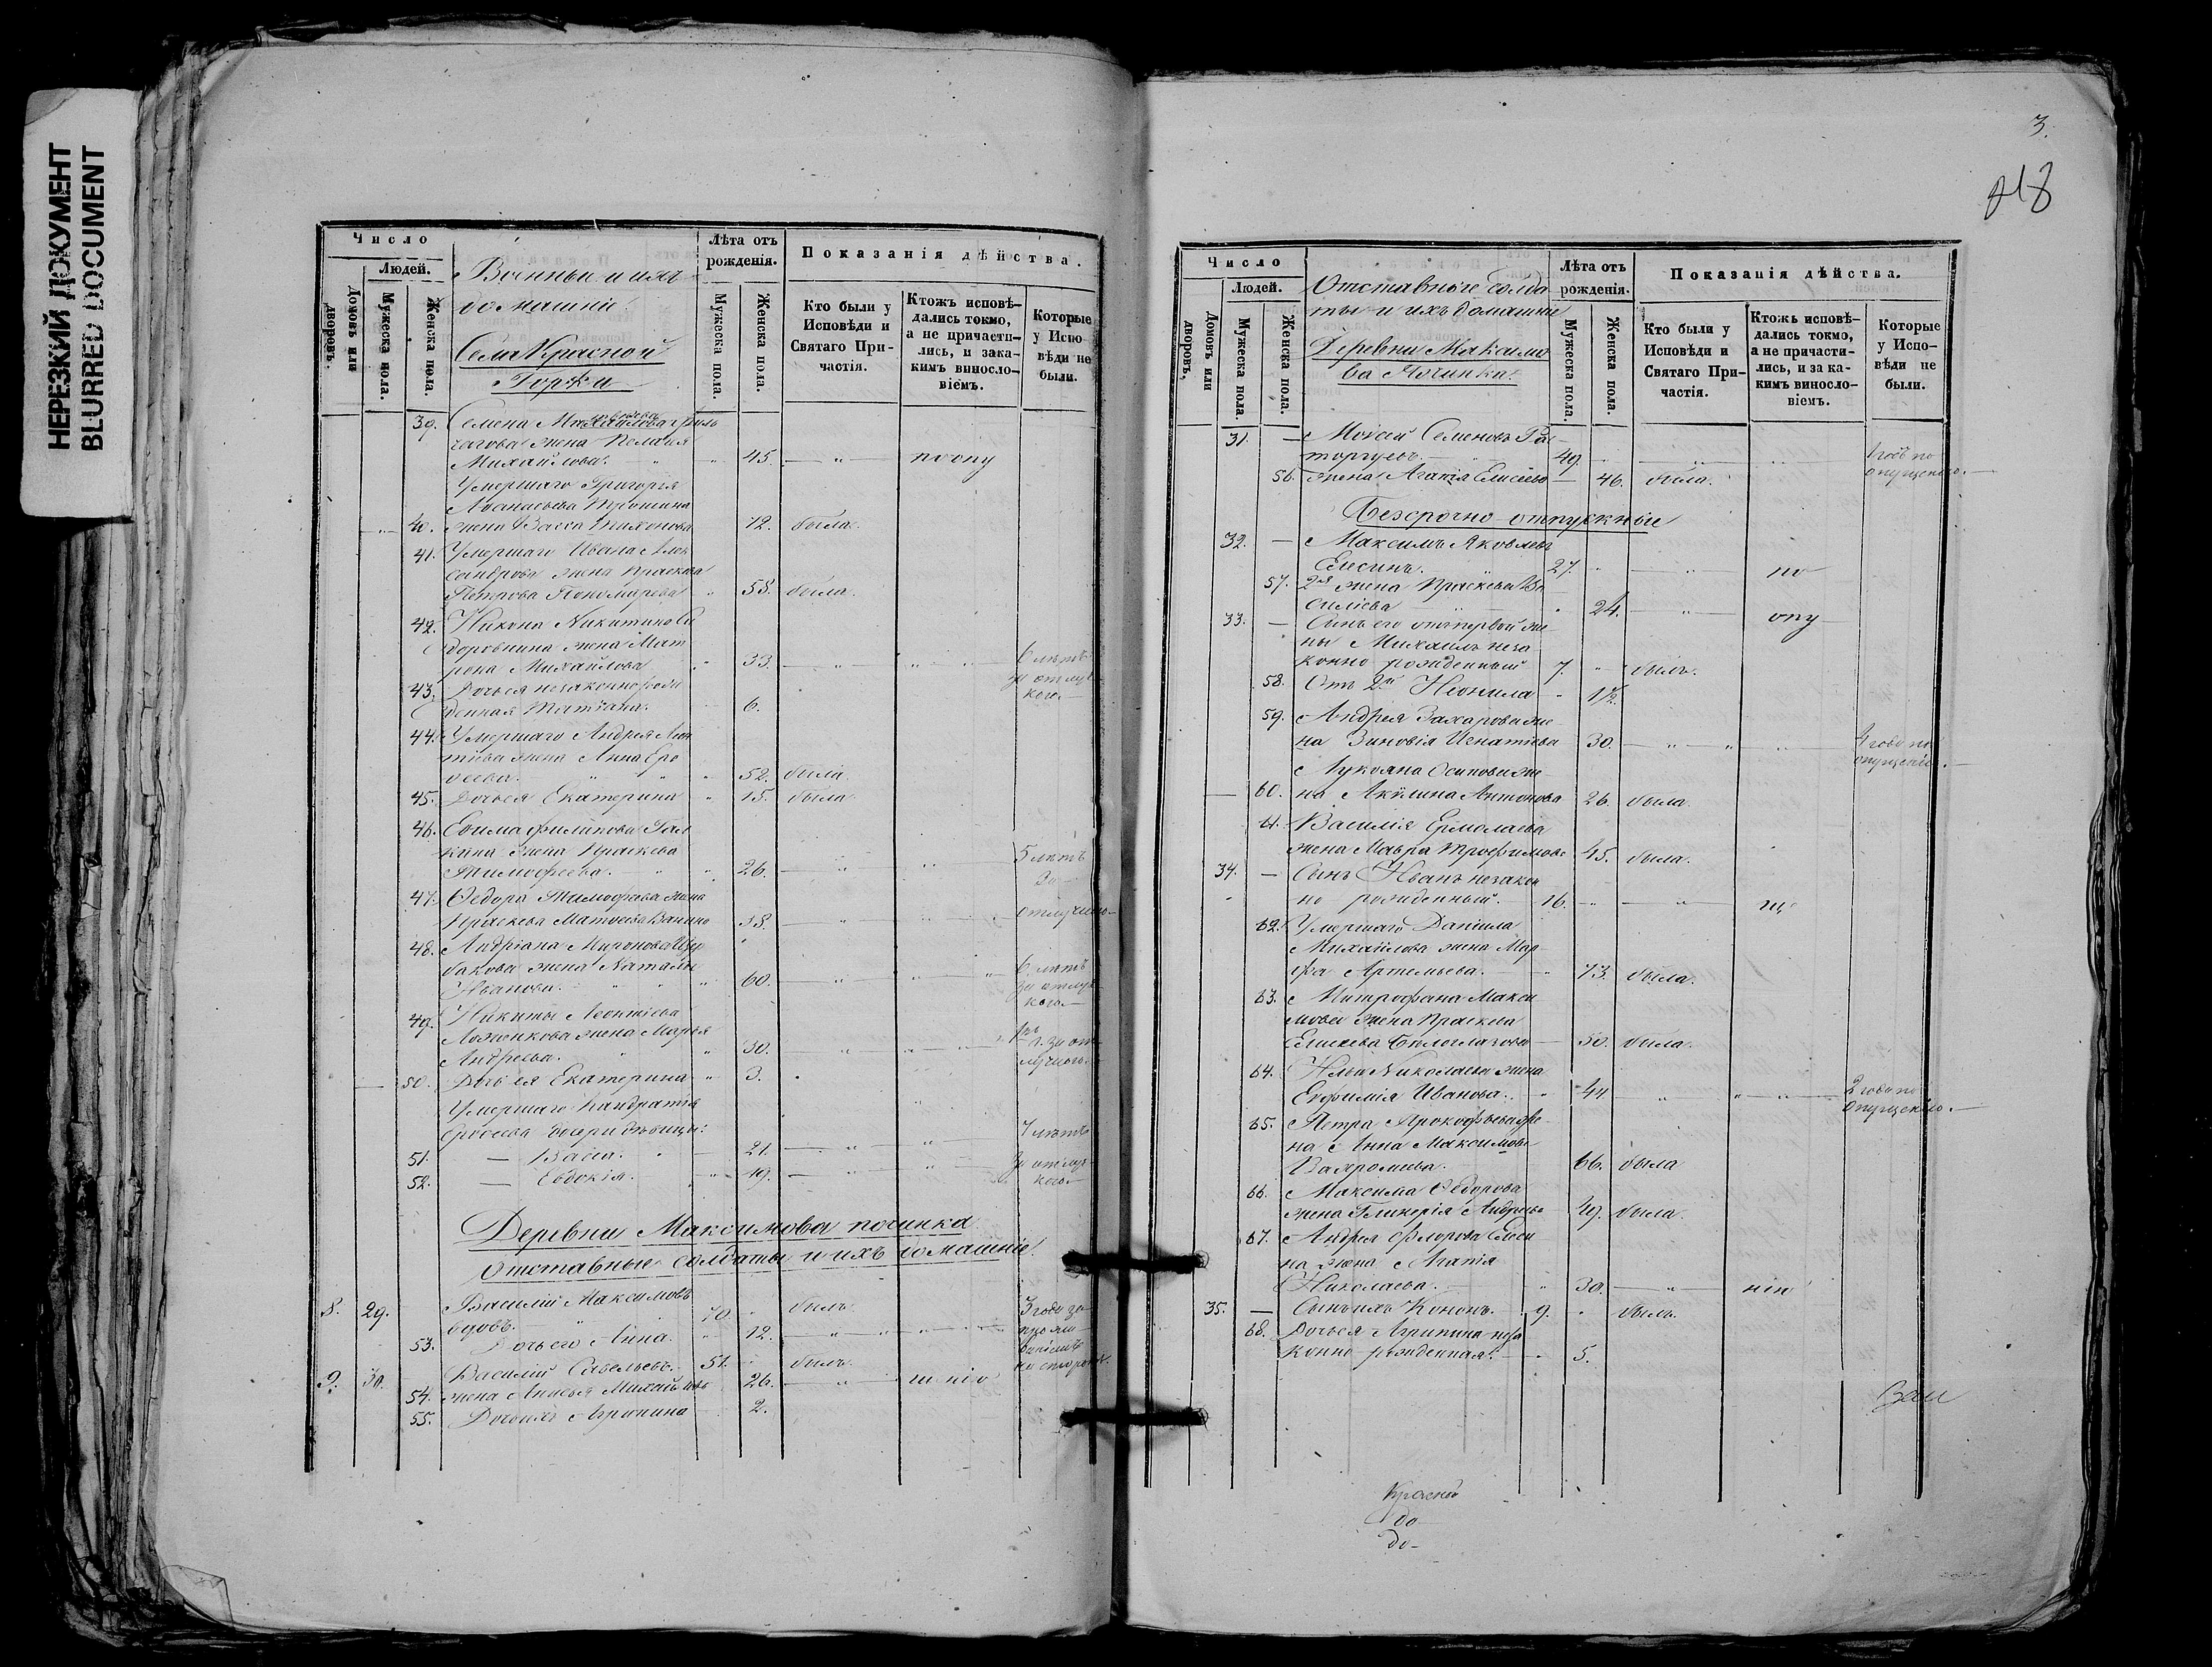 НЕРЕЗКИЙ ДОКУМЕНТ
BLURRED DOCUMENT
Число
Людей.
Домовъ или дворовъ.
Мужеска пола.
Женска пола.
Военные и ихъ
домашніе.
Села Красной
Горки
Лѣта отъ рожденія.
Мужеска пола.
Женска пола.
Показанія дѣйства.
Кто были у Исповѣди и Святаго Причастія.
Ктожъ исповѣдались токмо, а не причастились, и за какимъ винословіемъ.
Которые у Исповѣди не были.
39. Семена
жена Пелагія
Михайлова. 45. по опу
Умершаго Григорья
Аѳанасьева
40. жена Васса Тихонова 72. была.
41. Умершаго Ивана Алек
сандрова жена Праскева
Петрова Пономарева 58. была.
42. Никона Никитина Си
доровнина жена Мат
рона Михайлова 33. 6 лѣтъ
за отлуч
43. Дочь ея незаконнорож
денная Татіана. 6. кою.
44. Умершаго Андрея Леон
тіева жена Анна Еро
ѳеева. 52. была.
45. Дочь ея Екатерина 15. была
46. Ефима Филипова Гал
кина жена Праскева
Тимофеева. 26. 5 лѣтъ
за
47. Ѳедора Тимофеева жена
Праскева Матвеева 38. отлучкою
48. Андріана Миронова
бакова жена Наталья
Иванова. 60. 6 лѣтъ
за отлуч
кою.
49. Никиты Леонтіева
Ложенкова жена Марья
Андреева. 30. за от
лучкою.
50. Дочь ея Екатерина 3.
Умершаго Кандратія
Ероѳеева дочери дѣвицы: 7 лѣтъ
51. Васса. 21. за отлуч
52. Евдокія. 19. кою
Деревни Максимова починка
отставные солдаты и ихъ домашніе.
8. 29. Василій Максимовъ
вдовъ. 70. былъ 3 года за
53. Дочь его Анна. 12.
9. 30. Василій Савельевъ. 51. былъ
54. жена Анисья Михайлова 26. щенію
55. Дочь ихъ Агрипина 2.
3.
Число
Людей.
Домовъ или дворовъ.
Мужеска пола.
Женска пола.
Отставные солда
ты и ихъ домашніе
Деревни Максимо
ва Починка.
Лѣта отъ рожденія.
Мужеска пола.
Женска пола.
Показанія дѣйства.
Кто были у Исповѣди и Святаго Причастія.
Ктожъ исповѣдались токмо, а не причастились, и за какимъ винословіемъ.
Которые у Исповѣди не были.
31. Моисей Семеновъ Рас
торгуевъ. 49. 1 годъ по
опущенію.
56. жена Агапія Елисеева 46. была.
Безсрочно-отпускные
32. Максимъ Яковлевъ
Елесинъ. 27. по
57. 2я жена Праскева Ва
силіева 24. опу
33. Сынъ его отъ первой же
ны Михаилъ неза
конно рожденный 7. былъ.
58. Отъ 2й Неонила 1½
59. Андрея Захарова же
на Зиновія Игнатіева 30. 4 года по
опущенію.
Лукояна Осипова же
60. на Акулина Антонова 26. была
61. Василія Ермолаева
жена Мавра Трофимова 45. была.
34. Сынъ Иванъ незакон
но рожденный. 16. ще
62. Умершаго Даніила
Михайлова жена Мар
фа Артемьева. 73. была.
63. Митрофана Макси
мова жена Праскева
Елисеева Белоглазова 50. была.
64. Ильи Николаева жена
Евфимія Иванова. 44 2 года по
опущенію.
65. Петра Прокофьева же
на Анна Максимова
Вахромеева. 66. была
66. Максима Ѳедорова
жена Гликерія Андреева 49. была.
67. Андрея Флорова Елеси
на жена Агапія
Николаева. 30. нію
35. Сынъ ихъ Кононъ. 9. былъ.
68. Дочь ея Агрипина неза
конно рожденная. 5.
Красной
до
до